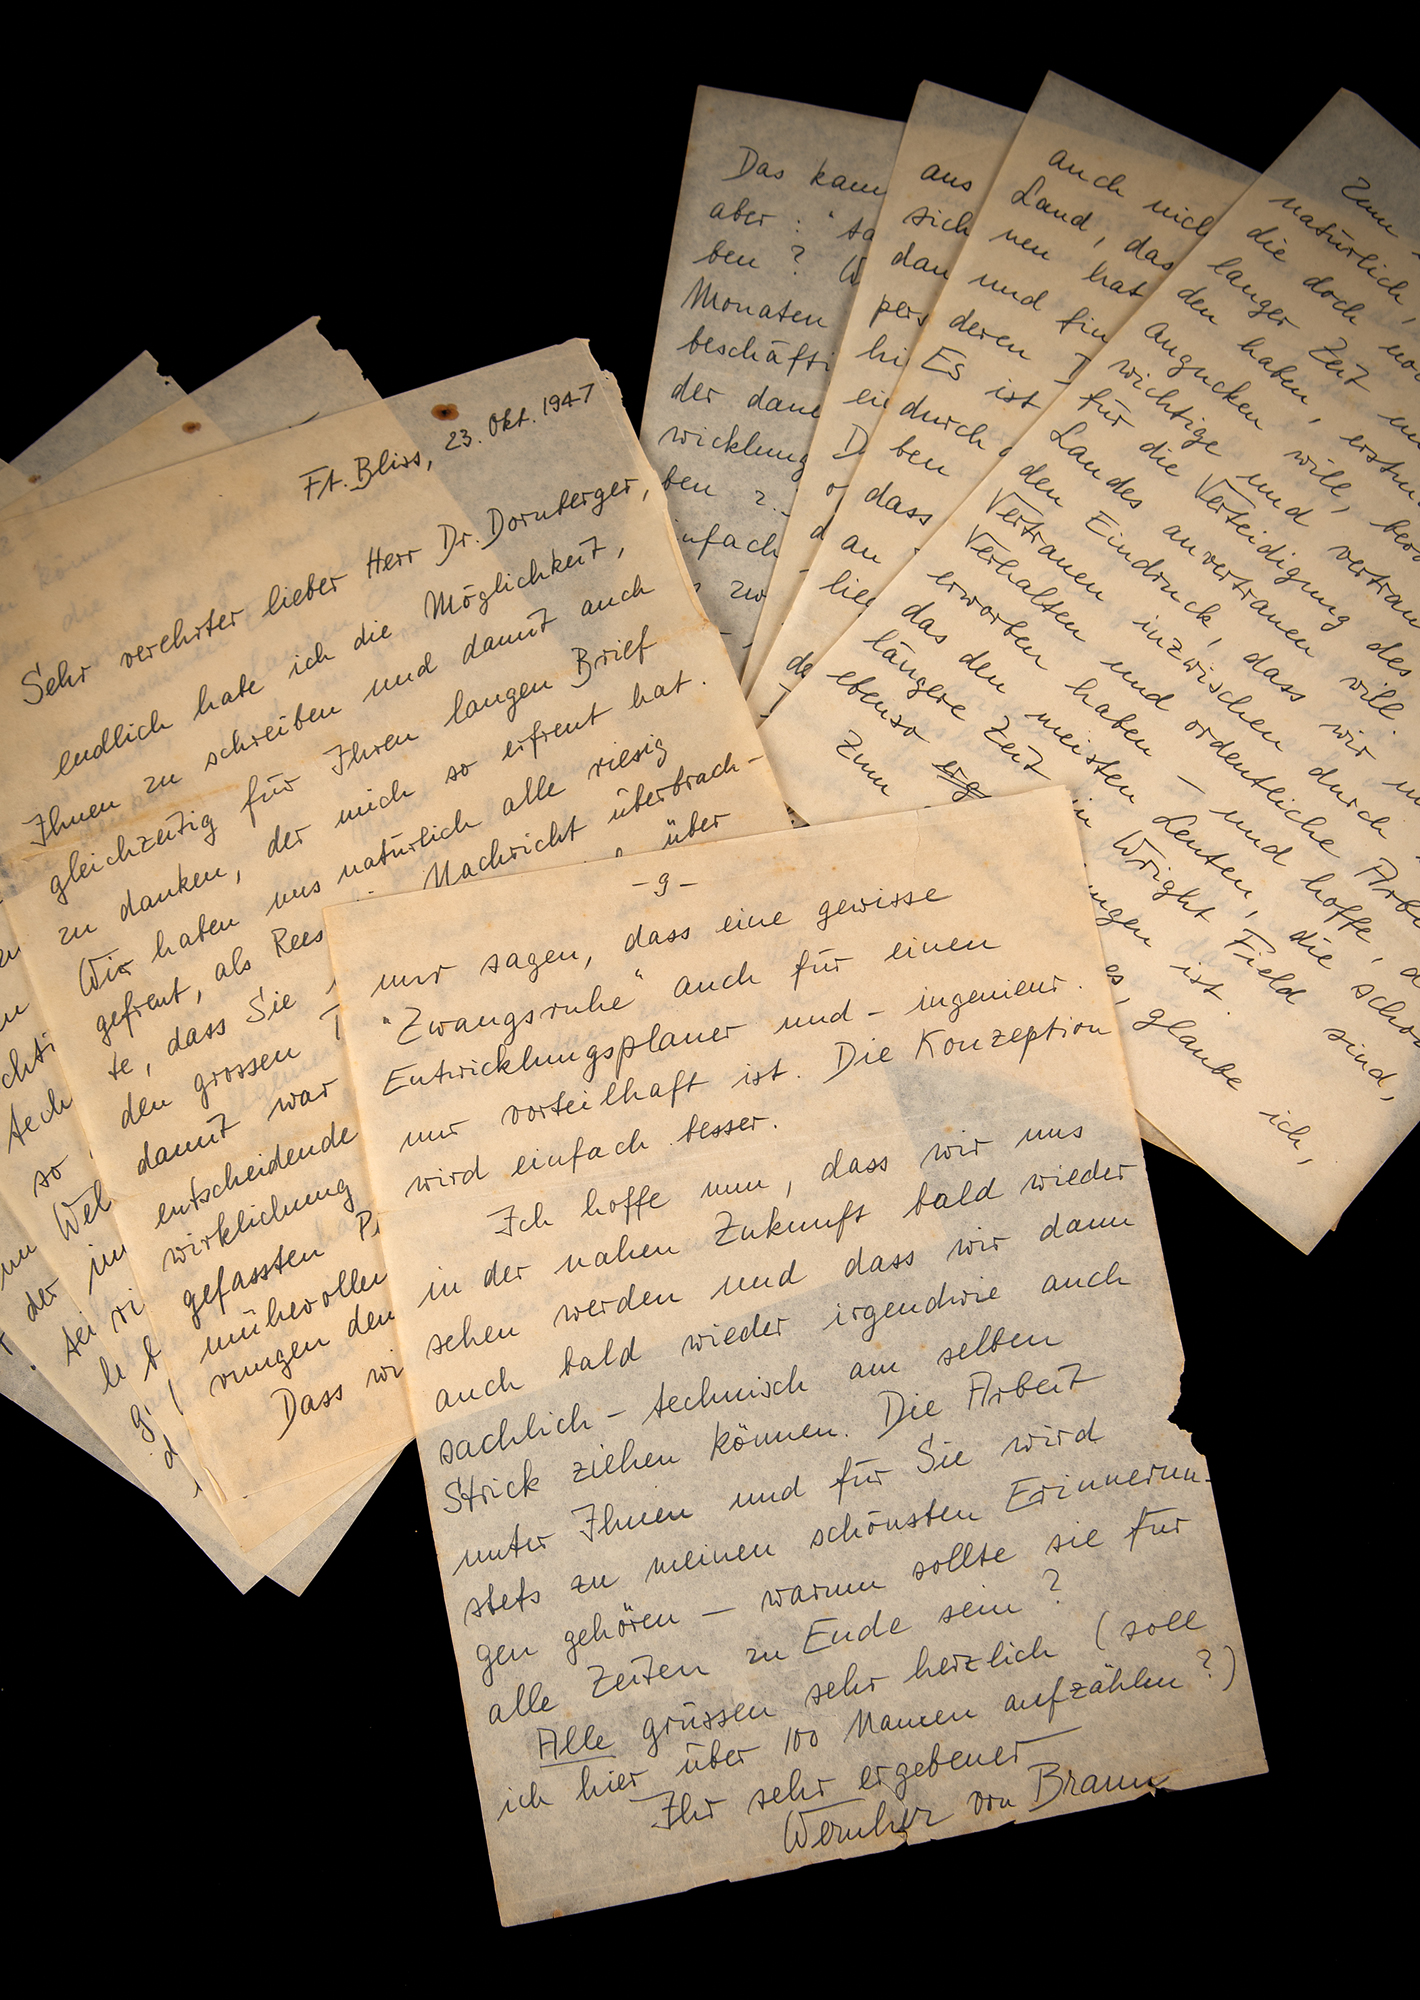 Ft. Bliss, 23. Okt. 1947
Sehr verehrter lieber Herr Dr. Dornberger,
endlich habe ich die Möglichkeit,
Ihnen zu schreiben und damit auch
gleichzeitig für Ihren langen Brief
zu danken, der mich so erfreut hat.
Wir haben uns natürlich alle riesig
gefreut, als Rees Nachricht überbrach-
te, dass Sie über
den grossen
damit war
entscheidende
wirklichung
gefassten
mühevollen
rungen den
Dass wi
Das kam
aber : "
ben ?
Monaten
beschäfti
der dane
wicklung
ben ?
nfach
zw
aus
sich
dan
pers
hi
ei
auch nich
Land, das
nen hat
und fin
deren
Es ist
durch
ben
dass
an
lie
Zum
natürlich,
die doch
langer Zeit
den haben, erstm
angucken will, bevo
wichtige und vertrau
für die Verteidigung des
Landes anvertrauen will
den Eindruck, dass wir
Vertrauen inzwischen durch
Verhalten und ordentliche Arbe
erworben haben – und hoffe, d
das den meisten Leuten, die schon
längere Zeit in Wright Field sind,
ebenso erg ungen ist.
Zum es, glaube ich,
- 9 -
nur sagen, dass eine gewisse
"Zwangsruhe" auch für einen
Entwicklungsplaner und - ingenieur.
nur vorteilhaft ist. Die Konzeption
wird einfach besser.
Ich hoffe nun, dass wir uns
in der nahen Zukunft bald wieder
sehen werden und dass wir dann
auch bald wieder irgendwie auch
sachlich - technisch am selben
Strick ziehen können. Die Arbeit
unter Ihnen und für Sie wird
stets zu meinen schönsten Erinnerun-
gen gehören – warum sollte sie für
alle Zeiten zu Ende sein ?
Alle grüssen sehr herzlich (soll
ich hier über 100 Namen aufzählen ?)
Ihr sehr ergebener
Wernher von Braun